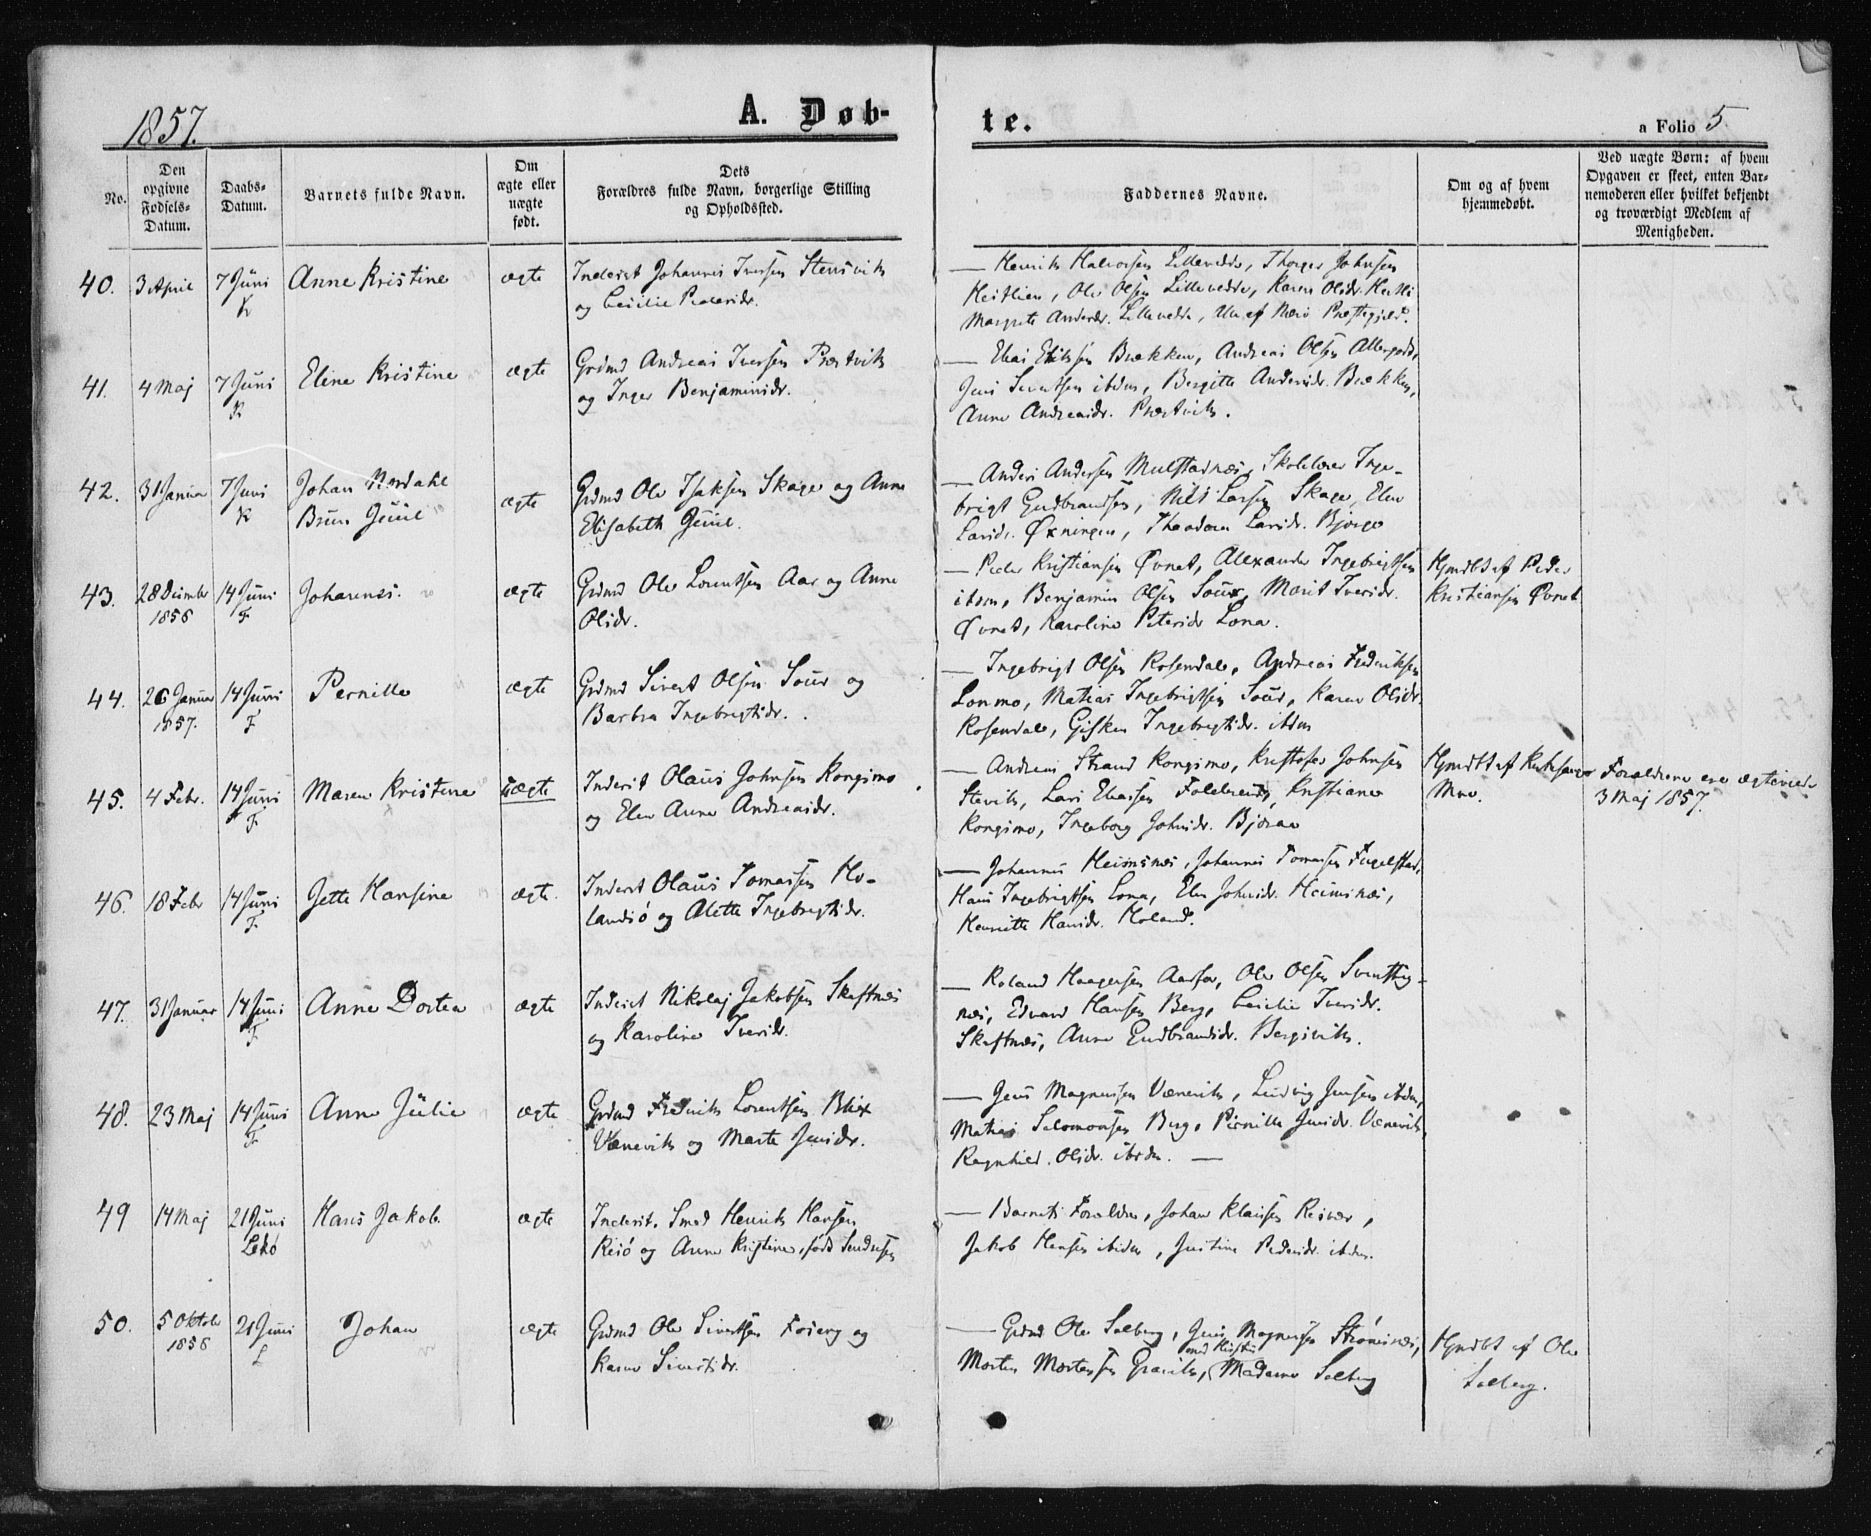 1857.
A. Døb-
te.
a Folio 5
No.
Den
opgivne
Fødsels-
Datum.
Daabs-
Datum.
Barnets fulde Navn.
Om
ægte eller
uægte
født.
Dets
Forældres fulde Navn, borgerlige Stilling
og Opholdssted.
Faddernes Navne.
Om og af hvem
hjemmedøbt.
Ved uægte Børn: af hvem
Opgaven er skeet, enten Bar-
nemoderen eller hvilket bekjendt
og troværdigt Medlem af
Menigheden.
40.
3 April
7 Juni
K
Anne Kristine
ægte
Inderst Johannes Iversen Stensvik
og Cecilie Pedersdr.
— Henrik Halvorsen Lillevedde, Johnsen
Heitlien, Ole Olsen Lillevedde, Karen Olsdr.
Margrete Andersdr. Lillevedde, af Nærø Præstegjeld.
41.
4 Maj
7 Juni
K
Eline Kristine
ægte
Grdmd Andreas Iversen Præstvik
og Inger Benjaminsdr.
— Elias Brækken, Andreas Olsen
Jens Sivertsen ibdm, Bergitte Andersdr. Brækken,
Anne Andreasdr. Præstvik.
42.
31 Januar
7 Juni
K
Johan Nordahl
Brun Juul
ægte
Grdmd Ole Isaksen Skage og Anne
Elisabeth Juul.
— Anders Andersen Mulstadnæs, Skolelærer Inge-
brigt Gudbrandsen, Nils Larsen Skage, Elen
Larsdr. Øxningen, Theodora Larsdr. Bjørgo
43.
28 December
1856
14 Juni
F
Johannes.
ægte
Grdmd Ole Lorentsen Aar og Anne
Olsdr.
— Peder Kristiansen Øvnet, Alexander Ingebrigtsen
ibdm, Benjamin Olsen Sour, Marit Iversdr.
Øvnet, Karoline Petersdr Lona.
Hjmdbt af Peder
Kristiansen Øvnet
44.
26 Januar
1857.
14 Juni
F
Pernille
ægte
Grdmd Sivert Olsen Sour og
Barbra Ingebrigtsdr.
— Ingebrigt Olsen Rosendal, Andreas Frederiksen
Lonmo, Matias Ingebrigtsen Sour, Karen Olsdr.
Rosendal, Gisken Ingebrigtsdr. ibdm
45.
4 Febr.
14 Juni
F
Maren Kristine
uægte
Inderst Olaus Johnsen Kongsmo
og Elen Anne Andreasdr.
— Andreas Strand Kongsmo, Kristofer Johnsen
Stevik, Lars Eliassen Foldereid, Kristiane
Kongsmo, Ingeborg Johnsdr. Bjøraa
Hjmdbt af
Moe.
Forældrene ere ægteviede
3 Maj 1857.
46.
18 Febr
14 Juni
F
Jette Hansine
ægte.
Inderst Olaus Tomassen Ho-
landsø og Alette Ingebrigtsdr.
— Johannes Heimsnæs, Johannes Tomassen Fugelstad,
Hans Ingebrigtsen Lona, Elen Johnsdr. Heimsnæs,
Henriette Hansdr. Holand.
47.
31 Januar
14 Juni
F
Anne Dortea
ægte
Inderst Nikolaj Jakobsen Skaftnæs
og Karoline Iversdr.
— Roland Haagensen Aarfor, Ole Olsen
næs, Edvard Hansen Berg, Cecilie Iversdr.
Skaftnæs, Anne Gudbrandsdr. Bergsvik.
48.
23 Maj
14 Juni
F
Anne Julie
ægte
Grdmd Fredrik Lorentsen Blix
Værevik og Marte Jensdr.
— Jens Magnussen Værevik, Ludvig Jensen ibdm,
Matias Salomonsen Berg, Pernille Jensdr. Værevik,
Ragnhild Olsdr. ibdm. —
49
14 Maj
21 Juni
Lekø
Hans Jakob.
ægte
Inderst. Smed Henrik Hansen
Reiø og Anne Kristine, født
— Barnets Forældre, Johan Klausen Risvær,
Jakob Hansen ibidm, Justine Pedersdr. ibdm.
50.
5 Oktober
1856
21 Juni
L
Johan
ægte
Grdmd Ole Sivertsen og
Karen Sivertsdr.
— Grdmd Ole Solberg, Jens Magnussen Strømsnæs,
med Hustru
Morten Mortensen Gravik, Madame Solberg
Hjmdbt af Ole
Solberg.